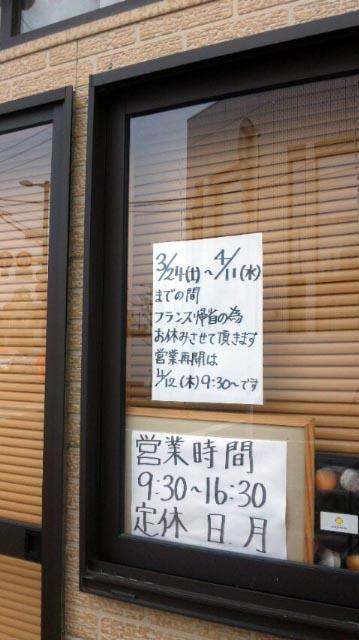 3/24(土)～4/11(水)
までの間
フランス帰省の為
お休みさせて頂きます
営業再開は
4/12(木)9:30～です
営業時間
9:30～16:30
定休 日.月